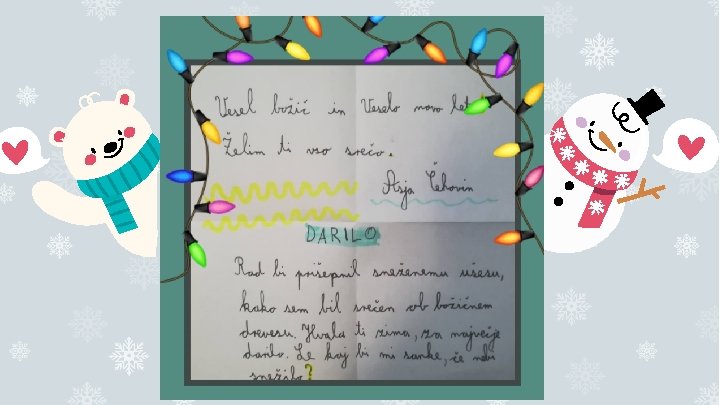 Vesel božič in Veselo novo leto
Želim ti vso srečo.
Asja Čehovin
DARILO
Rad bi prišepnil sneženemu ušesu,
kako sem bil srečen ob božičnem
drevesu. Hvala ti zima, za največje
darilo. Le kaj bi mi sanke, če nebi
snežilo?